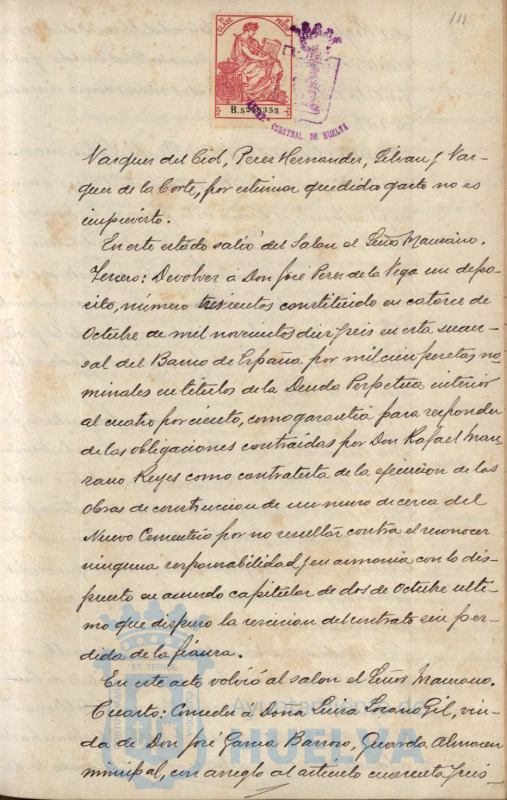 111
CLASE 7ª
1 PESETA
B.5220,353
AYUN. CONSTNAL. DE HUELVA
Vazquez del Cid, Perez Hernandez, Gilvan y Vaz-
quez de la Corte, por estimar que dicho gasto no es
imprevisto.
En este estado salió del Salon el Señor Manzano.
Tercero: Devolver á Don José Perez de la Vega un depo-
sito, número trescientos constituido en catorce de
Octubre de mil novecientos diez y seis en esta sucur-
sal del Banco de España por mil cien pesetas no-
minales en titulos de la Deuda Perpetua interior
al cuatro por ciento, como garantia para responder
de las obligaciones contraidas por Don Rafael Man-
zano Reyes como contratista de la ejecucion de las
obras de construccion de un muro de cerca del
Nuevo Cementerio por no resultar contra el reconocer
ninguna responsabilidad y en armonia con lo dis-
puesto en acuerdo capitular de dos de Octubre ulti-
mo que dispuso la rescision del contrato sin per-
dida de la fianza.
En este acto volvió al salon el Señor Manzano.
Cuarto: Conceder á Doña Luisa Lozano Gil, viu-
da de Don José Garcia Barroso, Guarda Almacen
municipal, con arreglo al articulo cuarenta y seis
ET TERRE
Ayuntamiento de
HUELVA